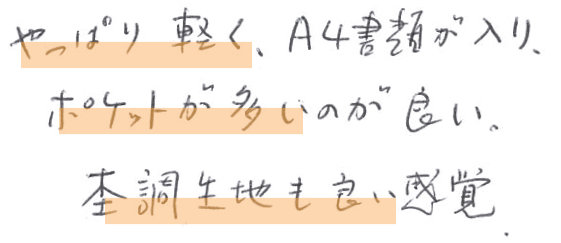 やっぱり軽く、A4書類が入り、
ポケットが多いのが良い、
杢調生地も良い感覚.